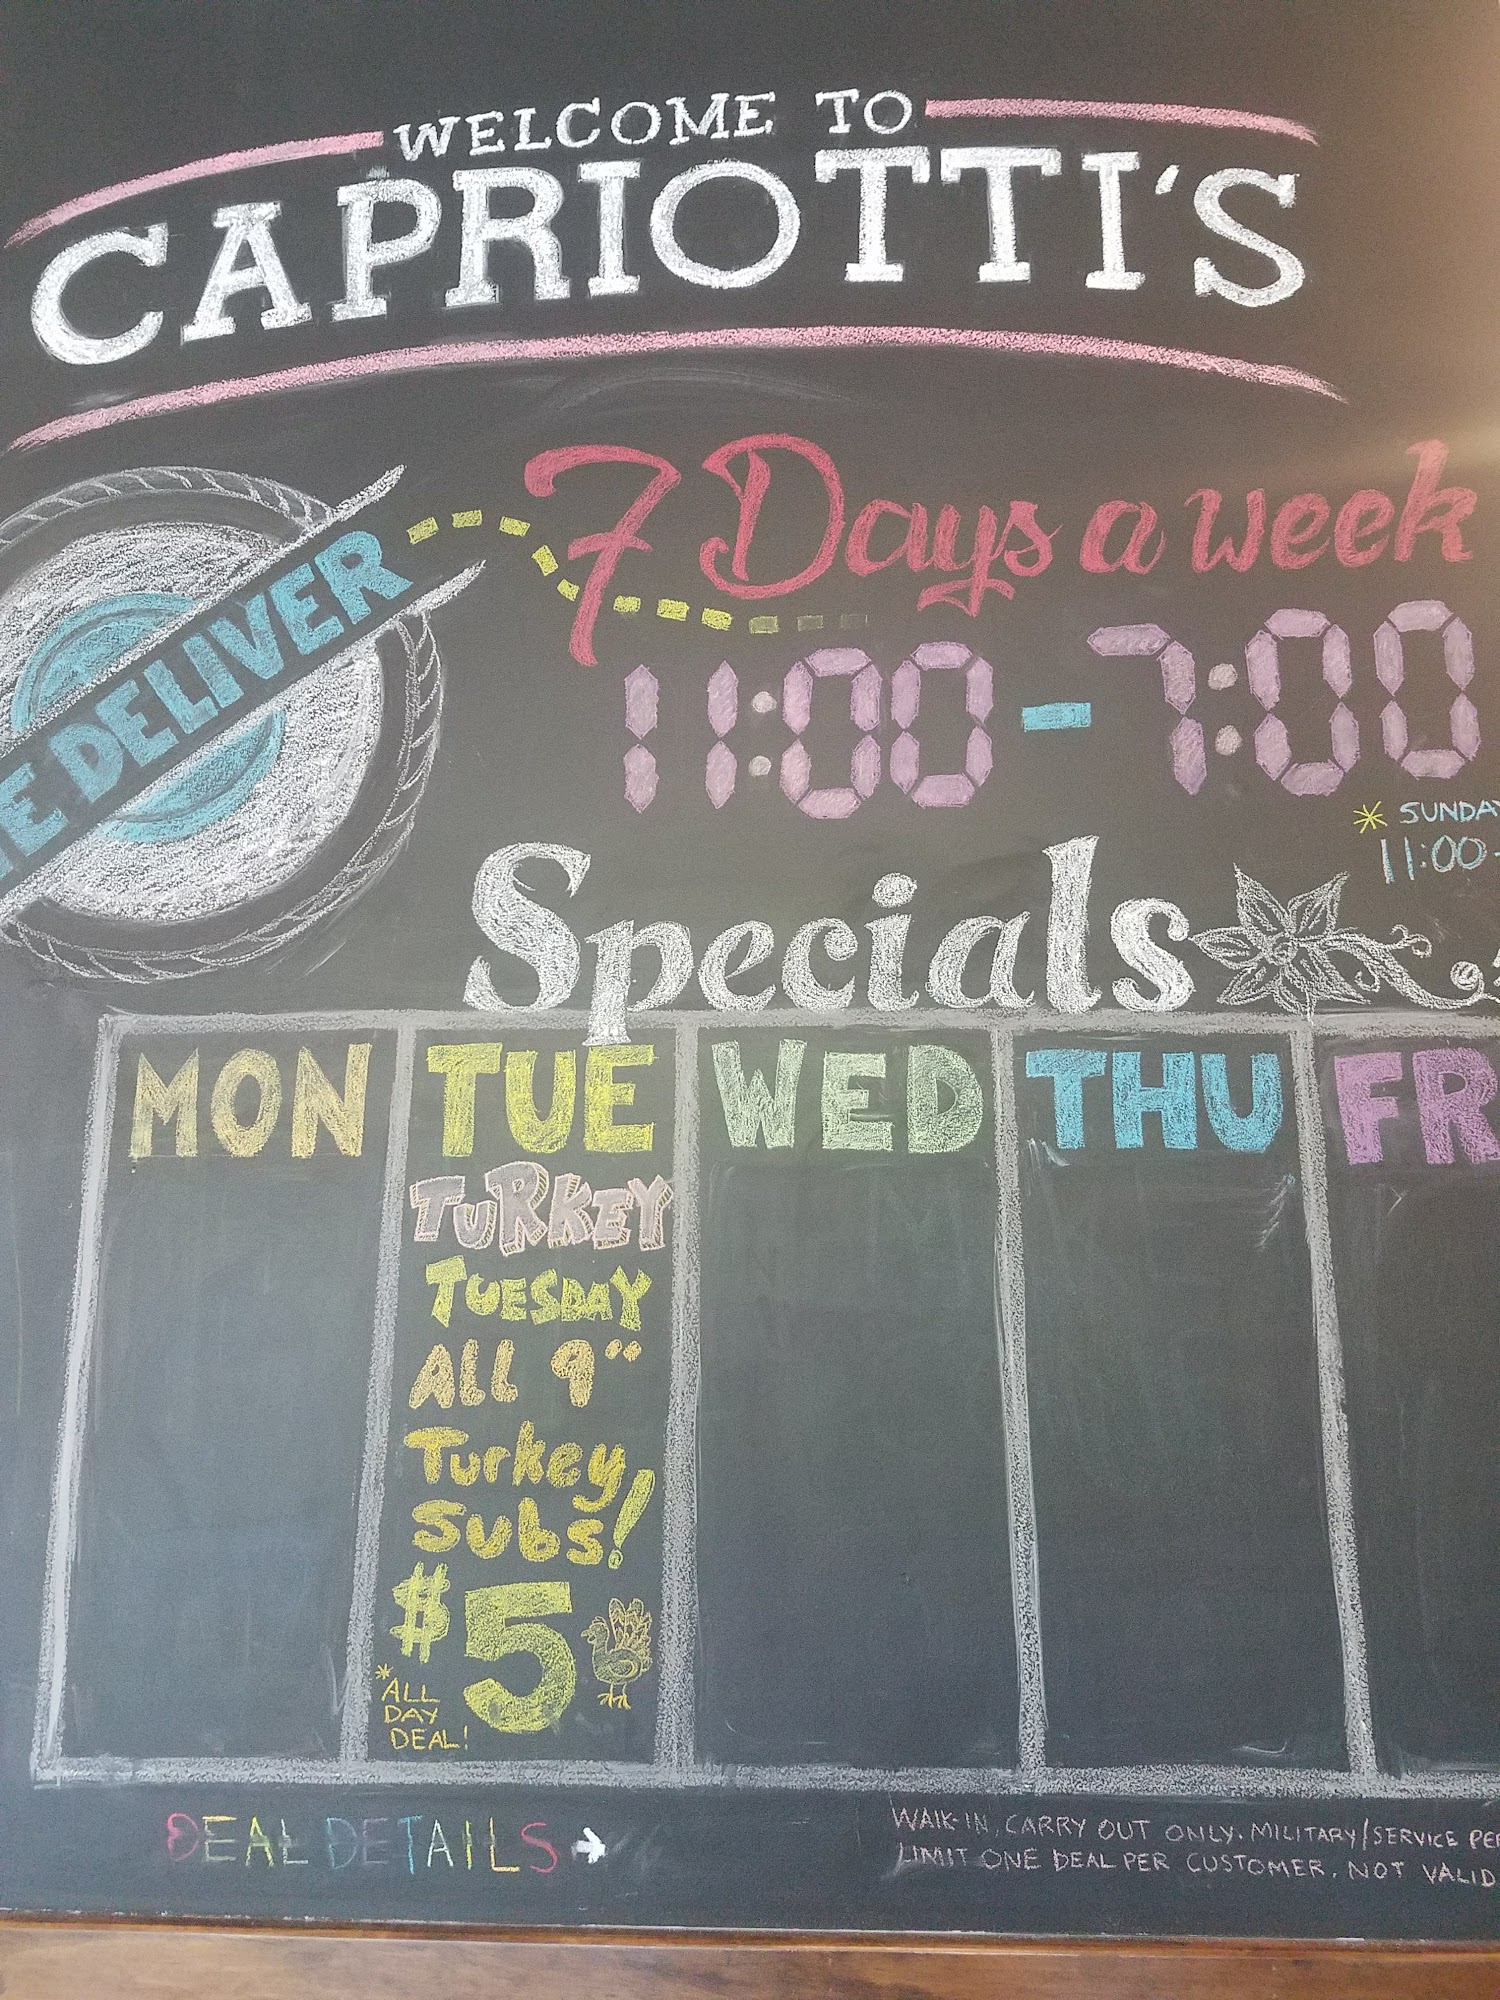 WELCOME TO
CAPRIOTTI'S
7 Days a week
DELIVER
11:00 - 7:00
* SUNDAY
11:00-
Specials
MON TUE WED THU FR
TURKEY
TUESDAY
ALL 9"
Turkey
Subs!
$5
*ALL
DAY
DEAL!
DEAL DETAILS →
WALK-IN, CARRY OUT ONLY. MILITARY/SERVICE PER
LIMIT ONE DEAL PER CUSTOMER. NOT VALID